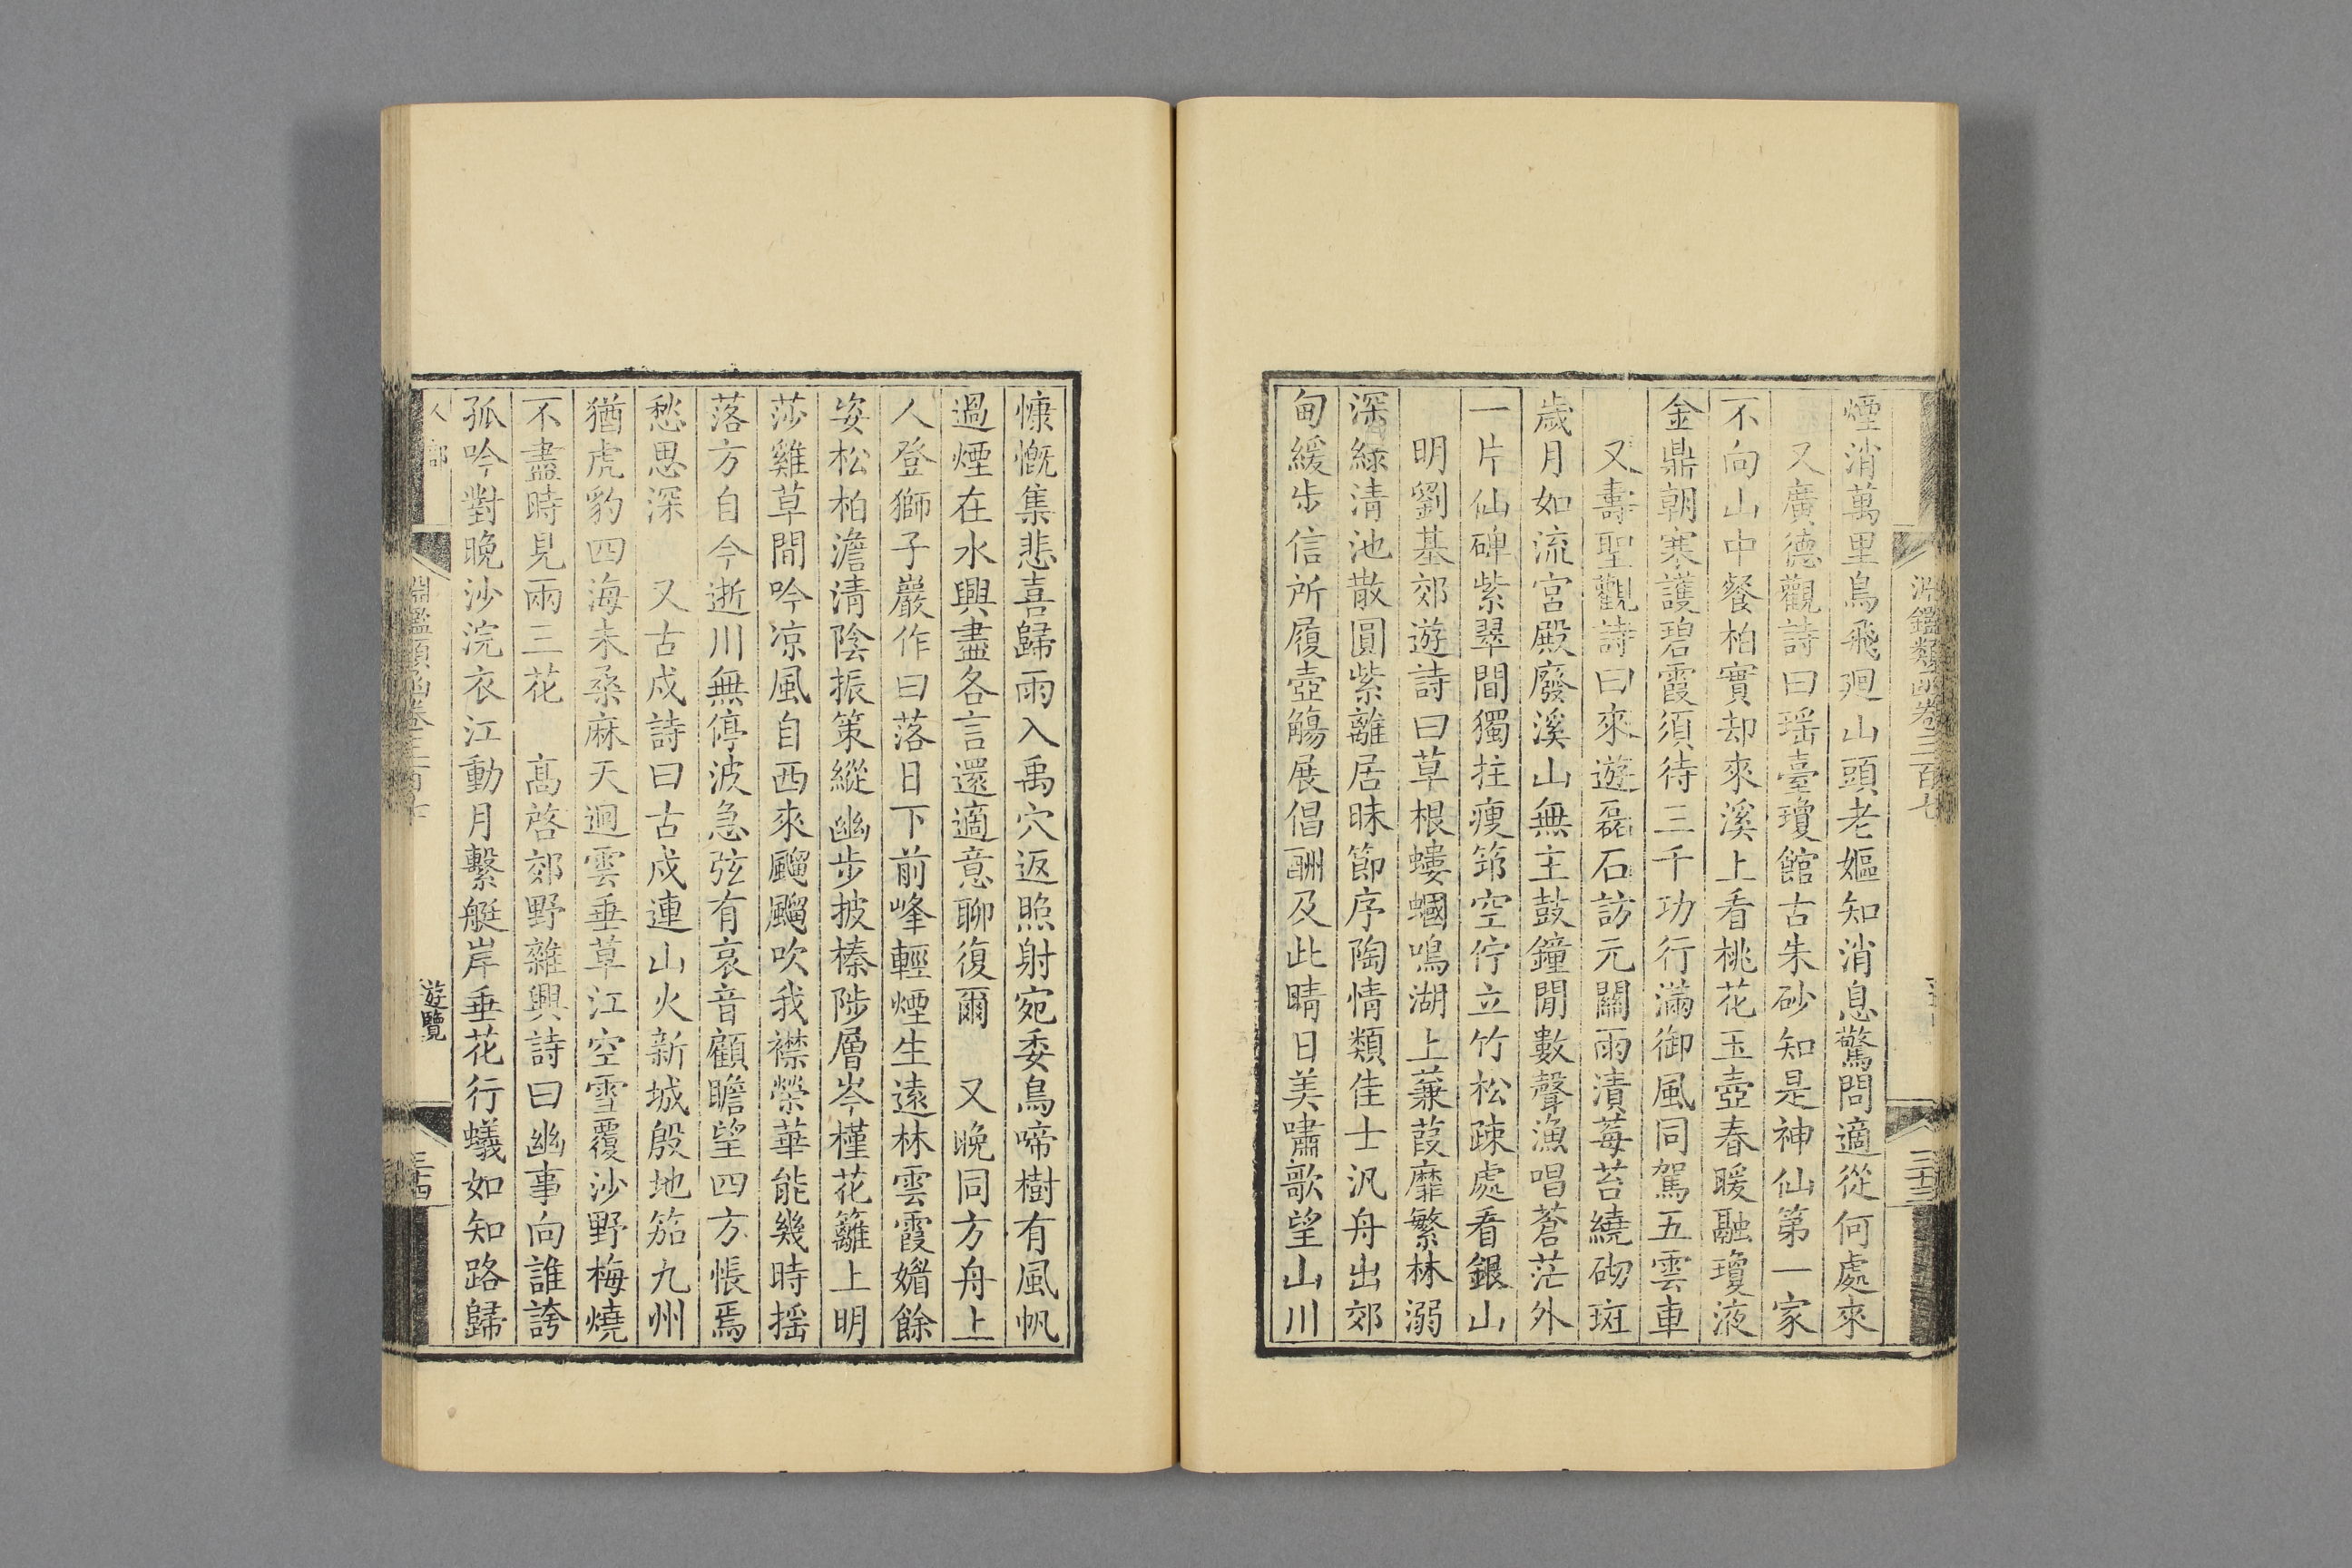 淵鑑類函卷三百七
煙消萬里鳥飛廻山頭老嫗知消息驚問適從何處來
又廣德觀詩曰瑶臺瓊館古朱砂知是神仙第一家
不向山中餐柏實却來溪上看桃花玉壺春暖融瓊液
金鼎朝寒護碧霞須待三千功行滿御風同駕五雲車
又壽聖觀詩曰來遊磊石訪元關雨漬莓苔繞砌斑
歲月如流宮殿廢溪山無主鼓鐘閒數聲漁唱蒼茫外
一片仙碑紫翠間獨拄瘦筇空佇立竹松疎處看銀山
明劉基郊遊詩曰草根螻蟈鳴湖上蒹葭靡繁林溺
深綠清池散圓紫離居昧節序陶情類佳士汎舟出郊
甸緩步信所履壺觴展倡酬及此晴日美嘯歌望山川
慷慨集悲喜歸雨入禹穴返照射宛委鳥啼樹有風帆
過煙在水興盡各言還適意聊復爾　又晚同方舟上
人登獅子巖作曰落日下前峰輕煙生遠林雲霞媚餘
姿松柏澹清陰振策縱幽步披榛陟層岑槿花籬上明
莎雞草間吟凉風自西來飀飀吹我襟榮華能幾時摇
落方自今逝川無停波急弦有哀音顧瞻望四方悵焉
愁思深　又古戍詩曰古戍連山火新城殷地笳九州
猶虎豹四海未桑麻天迥雲垂草江空雪覆沙野梅燒
不盡時見兩三花　高啓郊野雜興詩曰幽事向誰誇
孤吟對晚沙浣衣江動月繫艇岸垂花行蟻如知路歸
人部
淵鑑類函卷三百七
遊覽
三十四